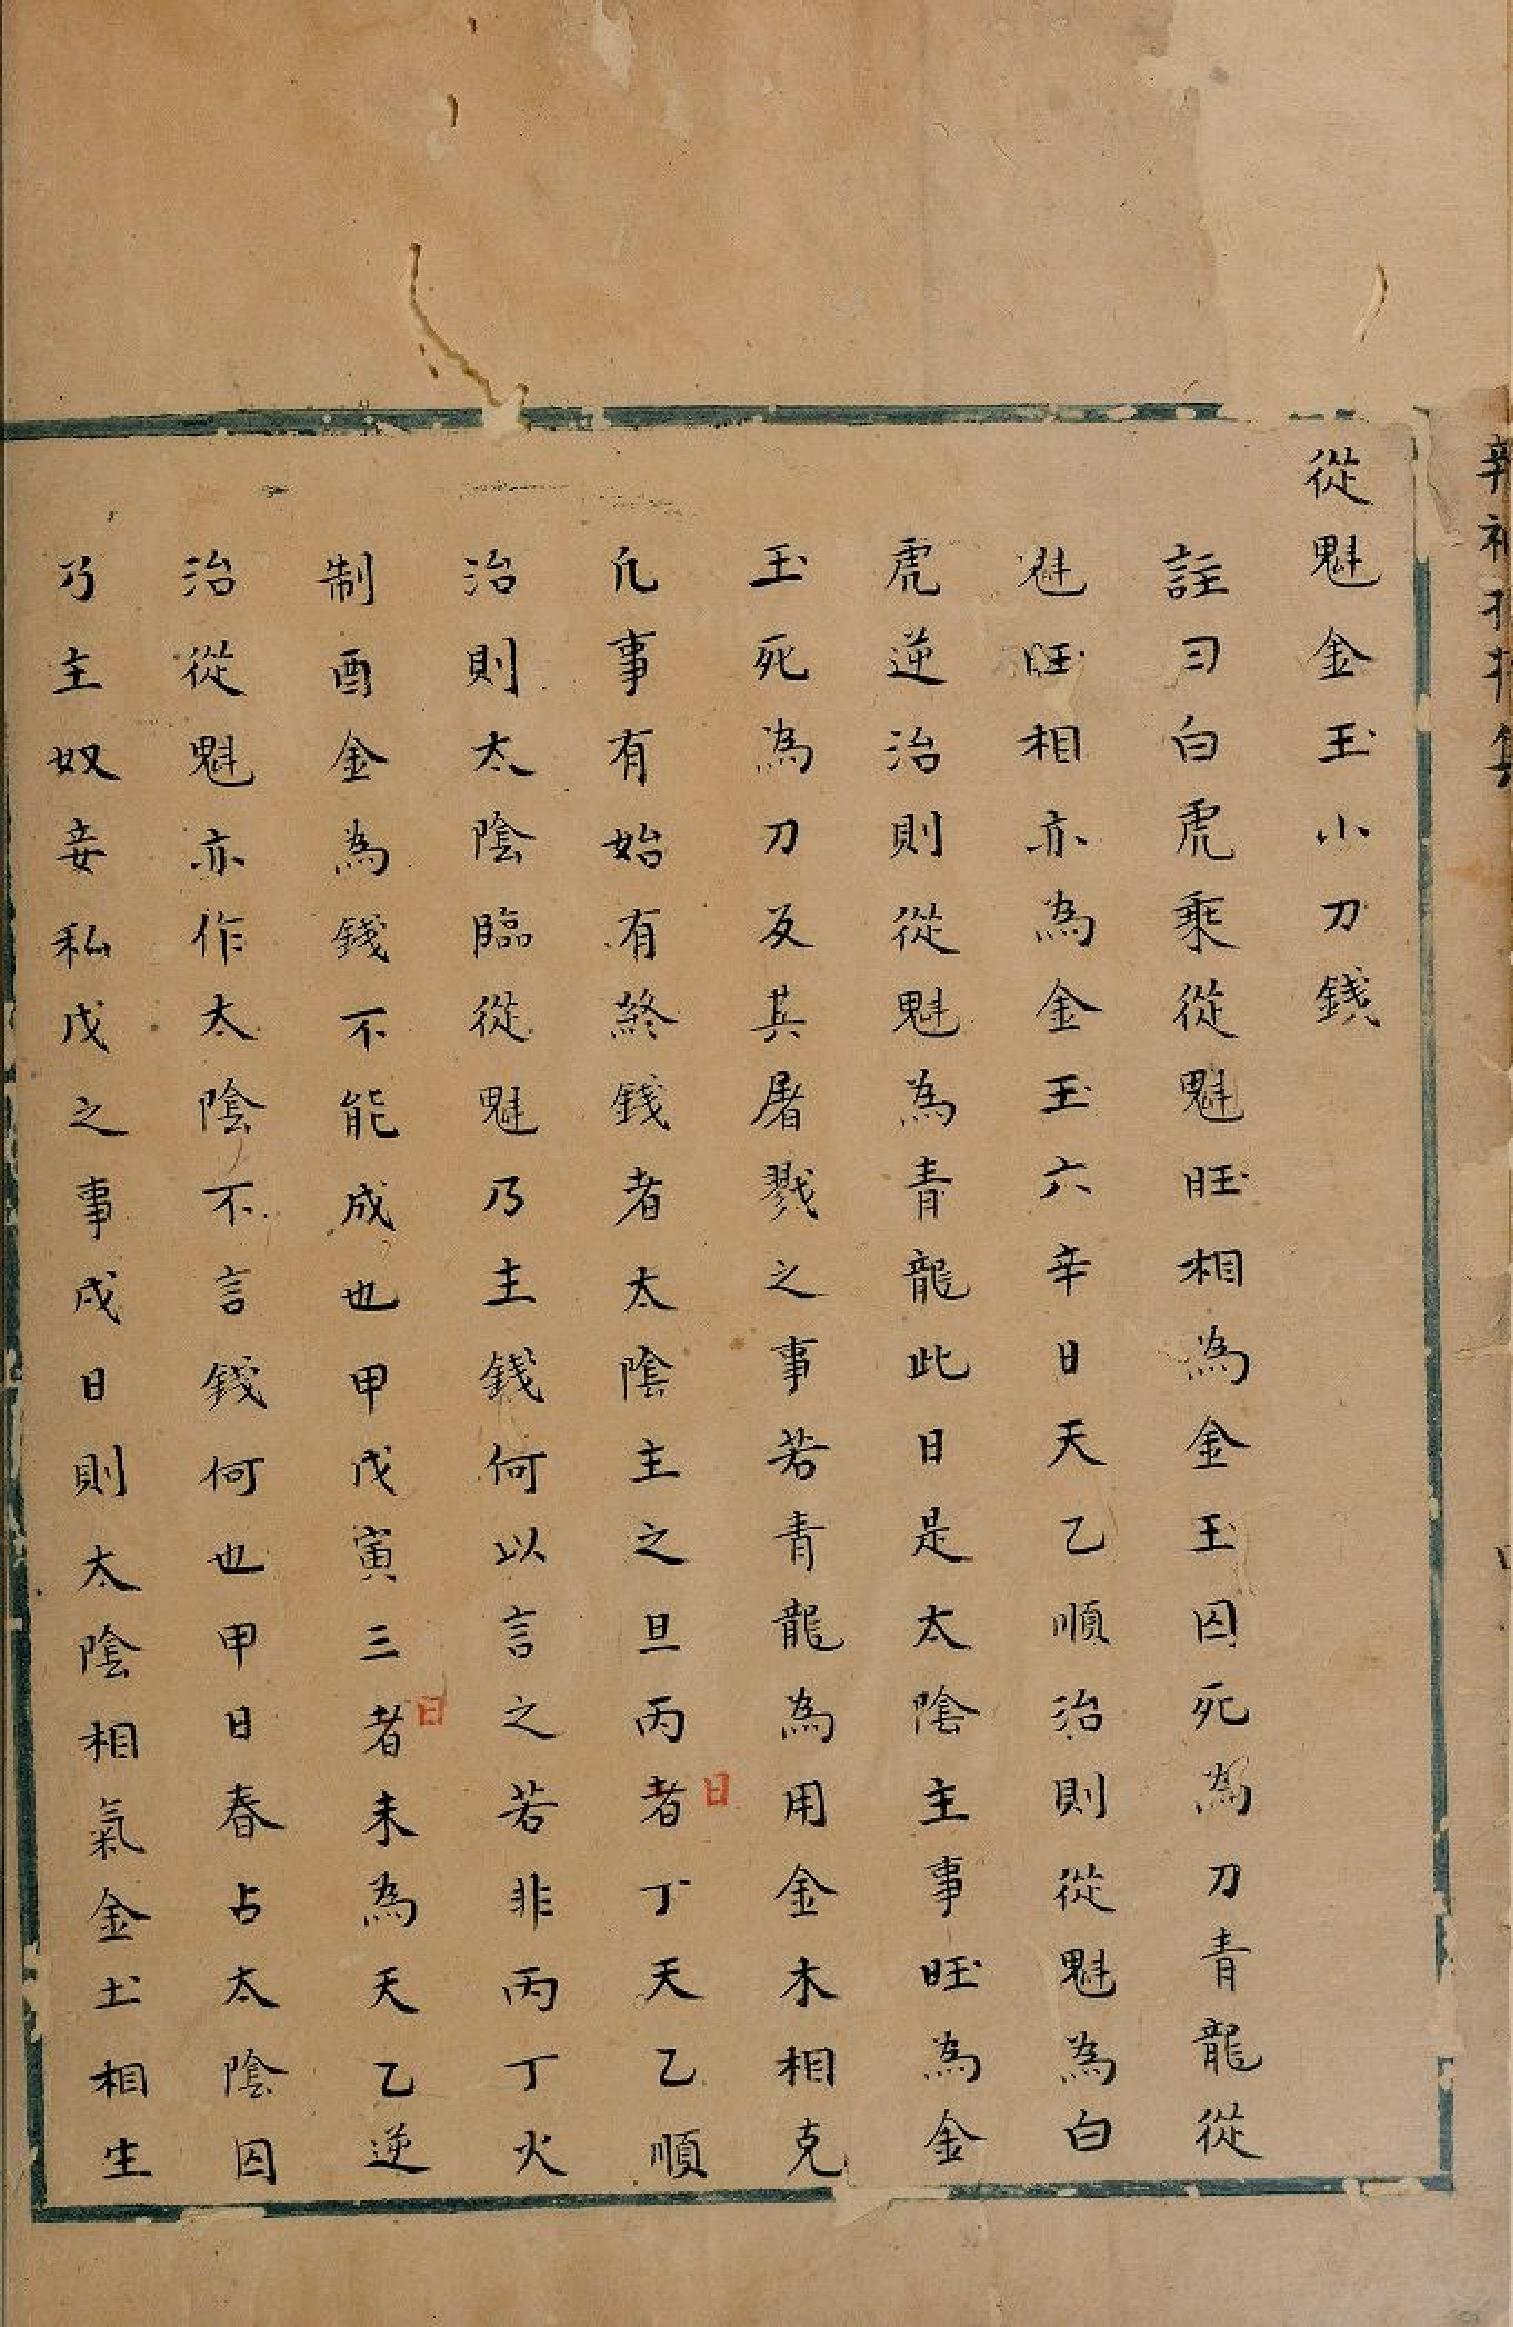 從魁金玉小刀錢
註曰白虎乘從魁旺相為金玉囚死為刀青龍從
魁旺相亦為金玉六辛日天乙順治則從魁為白
虎逆治則從魁為青龍此日是太陰主事旺為金
玉死為刀及其屠戮之事若青龍為用金木相克
凢事有始有終錢者太陰主之旦丙者丁天乙順
日
治則太陰臨從魁乃主錢何以言之若非丙丁火
制酉金為錢不能成也甲戊寅三者未為天乙逆
日
治從魁亦作太陰不言錢何也甲日春占太陰囚
乃主奴妾私戊之事戌日則太陰相氣金土相生